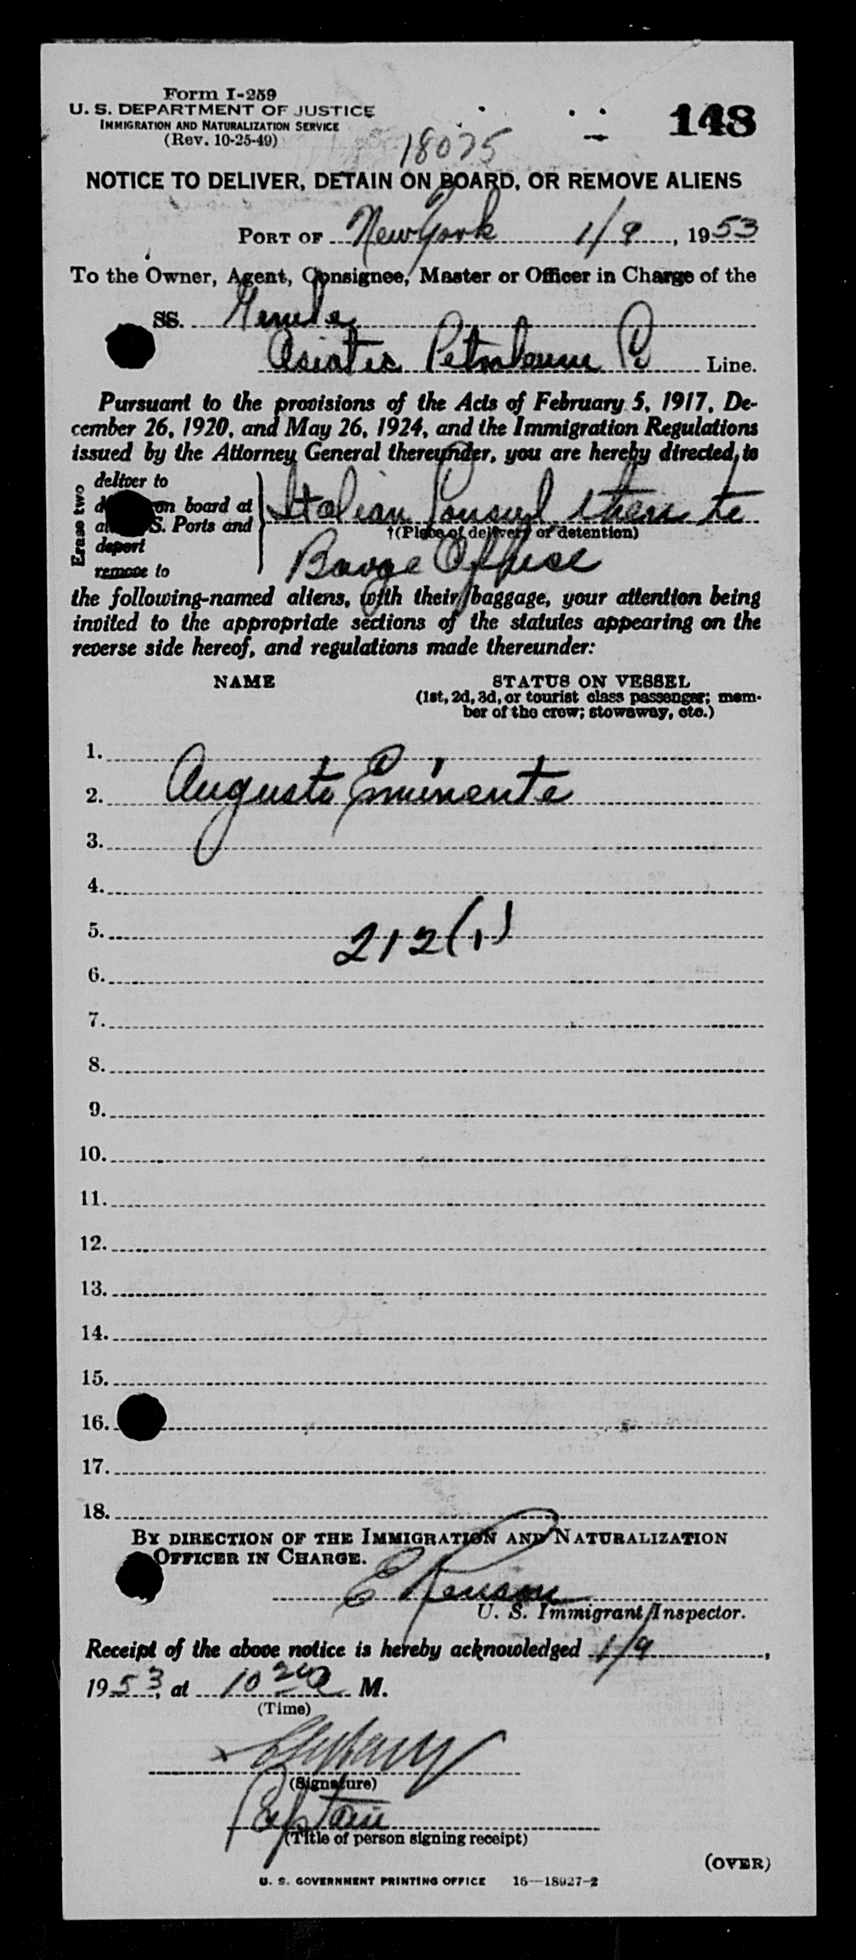 Form I-259
U. S. DEPARTMENT OF JUSTICE
IMMIGRATION AND NATURALIZATION SERVICE
(Rev. 10-25-49)
148
18075
NOTICE TO DELIVER, DETAIN ON BOARD, OR REMOVE ALIENS
PORT OF New York 1/9, 1953
To the Owner, Agent, Consignee, Master or Officer in Charge of the
SS.
Asiatic Petroleum Co Line.
Pursuant to the provisions of the Acts of February 5, 1917, De-
cember 26, 1920, and May 26, 1924, and the Immigration Regulations
issued by the Attorney General thereunder, you are hereby directed to
Erase two
deliver to
on board at
S. Ports and
deport
remove to
Italian Consul then to
†(Place of delivery or detention)
Barge Office
the following-named aliens, with their baggage, your attention being
invited to the appropriate sections of the statutes appearing on the
reverse side hereof, and regulations made thereunder:
NAME STATUS ON VESSEL
(1st, 2d, 3d, or tourist class passenger; mem-
ber of the crew; stowaway, etc.)
1.
2. Augusto Eminente
3.
4.
5. 212(1)
6.
7.
8.
9.
10.
11.
12.
13.
14.
15.
16.
17.
18.
BY DIRECTION OF THE IMMIGRATION AND NATURALIZATION
OFFICER IN CHARGE.
E
U. S. Immigrant Inspector.
Receipt of the above notice is hereby acknowledged 1/9,
1953, at 10 20 a M.
(Time)
(Signature)
Captain
(Title of person signing receipt)
(OVER)
U. S. GOVERNMENT PRINTING OFFICE 16—18927-2